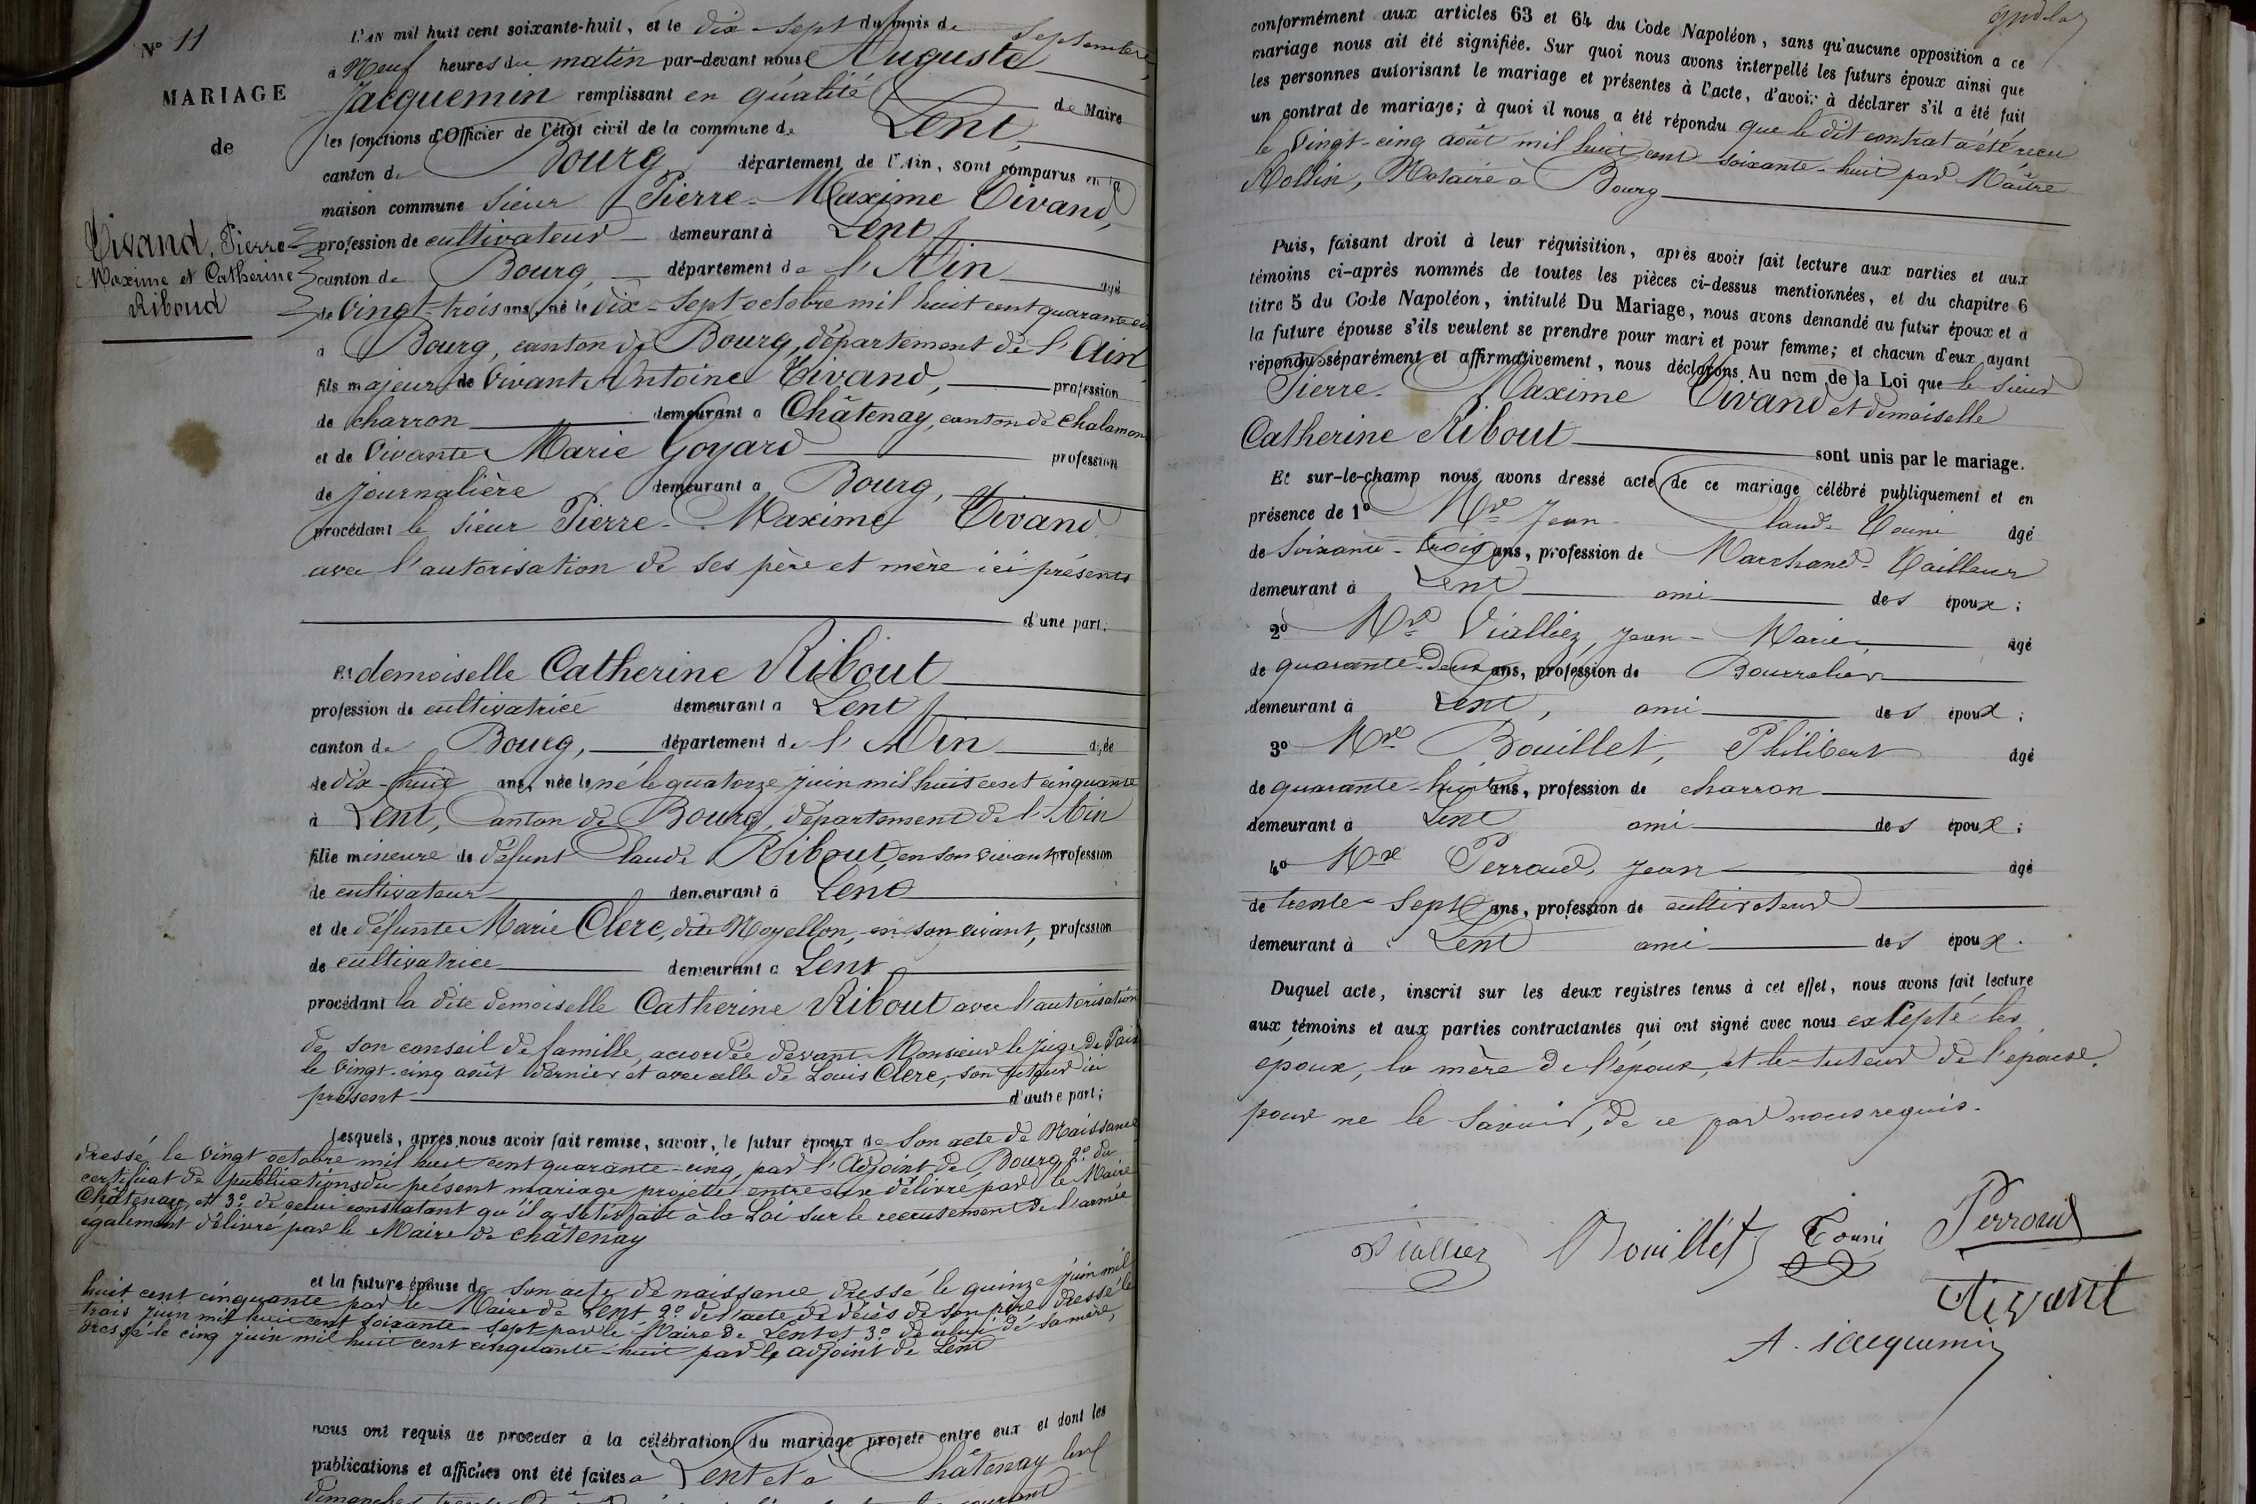 N° 11
MARIAGE
de
Tivand, Pierre-
Maxime et Catherine
Riboud
L'AN mil huit cent soixante-huit, et le dix-sept du mois de septembre
à Neuf heures du matin par-devant nous Auguste
Jacquemin remplissant en qualité de Maire
les fonctions d'Officier de l'état civil de la commune de Lent,
canton de Bourg département de l'Ain, sont comparus en la
maison commune sieur Pierre-Maxime Tivand,
profession de cultivateur demeurant à Lent
canton de Bourg, département de l'Ain agé
de vingt-trois ans, né le dix-sept octobre mil huit cent quarante
à Bourg, canton de Bourg, département de l'Ain
fils majeur de vivant Antoine Tivand, profession
de charron demeurant à Châtenay, canton de Chalamon
et de vivante Marie Goyard profession
de journalière demeurant à Bourg,
procédant le sieur Pierre-Maxime Tivand
avec l'autorisation de ses père et mère ici présents
d'une part;
Et demoiselle Catherine Ribout
profession de cultivatrice demeurant à Lent
canton de Bourg, département de l'Ain agée
de dix-huit ans, née le né le quatorze juin mil huit cent cinquante
à Lent, Canton de Bourg, département de l'Ain
fille mineure de défunt Claude Ribout, en son vivant profession
de cultivateur demeurant à Lent
et de défunte Marie Clerc, dite Moyellon, en son vivant, profession
de cultivatrice demeurant à Lent
procédant la dite demoiselle Catherine Ribout avec l'autorisation
de son conseil de famille, accordée devant Monsieur le juge de Paix
le vingt-cinq août dernier et avec celle de Louis Clerc, son tuteur ici
présent d'autre part;
Lesquels, après nous avoir fait remise, savoir, le futur époux de son acte de Naissance
dressé le vingt octobre mil huit cent quarante-cinq, par l'Adjoint de Bourg 2° du
certificat de publications du présent mariage projetté entre eux délivré par le Maire
Châtenay, et 3° de celui constatant qu'il a satisfait à la Loi sur le recrutement de l'armée
également délivré par le Maire de Châtenay
et la future épouse de son acte de naissance dressé le quinze juin mil
huit cent cinquante par le Maire de Lent, 2° de l'acte de décès de son père dressé le
trois juin mil huit cent soixante-sept par le Maire de Lent et 3° de celui de sa mère,
dressé le cinq juin mil huit cent cinquante-huit par l'adjoint de Lent
nous ont requis de procéder à la célébration du mariage projeté entre eux et dont les
publications et affiches ont été faites à Lent et à Châtenay les
dimanches trente courant
conformément aux articles 63 et 64 du Code Napoléon, sans qu'aucune opposition a ce
mariage nous ait été signifiée. Sur quoi nous avons interpellé les futurs époux ainsi que
les personnes autorisant le mariage et présentes à l'acte, d'avoir à déclarer s'il a été fait
un contrat de mariage; à quoi il nous a été répondu que le dit contrat a été reçu
le vingt-cinq août mil huit cent soixante-huit par Maître
Rollin, Notaire à Bourg
Puis, faisant droit à leur réquisition, après avoir fait lecture aux parties et aux
témoins ci-après nommés de toutes les pièces ci-dessus mentionnées, et du chapitre 6
titre 5 du Code Napoléon, intitulé Du Mariage, nous avons demandé au futur époux et a
la future épouse s'ils veulent se prendre pour mari et pour femme; et chacun d'eux ayant
répondu séparément et affirmativement, nous déclarons Au nom de la Loi que le sieur
Pierre-Maxime Tivand et demoiselle
Catherine Ribout sont unis par le mariage.
Et sur-le-champ nous avons dressé acte de ce mariage célébré publiquement et en
présence de 1° Mr Jean-Claude Tourni agé
de soixante-trois ans, profession de Marchand-Tailleur
demeurant à Lent ami des époux;
2° Mr Vialliez, Jean-Marie, agé
de quarante-deux ans, profession de Bourrelier
demeurant à Lent, ami des époux;
3° Mr Bouillet, Philibert agé
de quarante-huit ans, profession de charron
demeurant à Lent ami des époux;
4° Mr Perroud, Jean agé
de trente-sept ans, profession de cultivateur
demeurant à Lent ami des époux.
Duquel acte, inscrit sur les deux registres tenus à cet effet, nous avons fait lecture
aux témoins et aux parties contractantes qui ont signé avec nous excepté les
époux, la mère de l'époux, et le tuteur de l'épouse.
pour ne le savoir, de ce par nous requis.
Viallier Bouillet Tourni Perroud
Tivant
A. Jacquemin